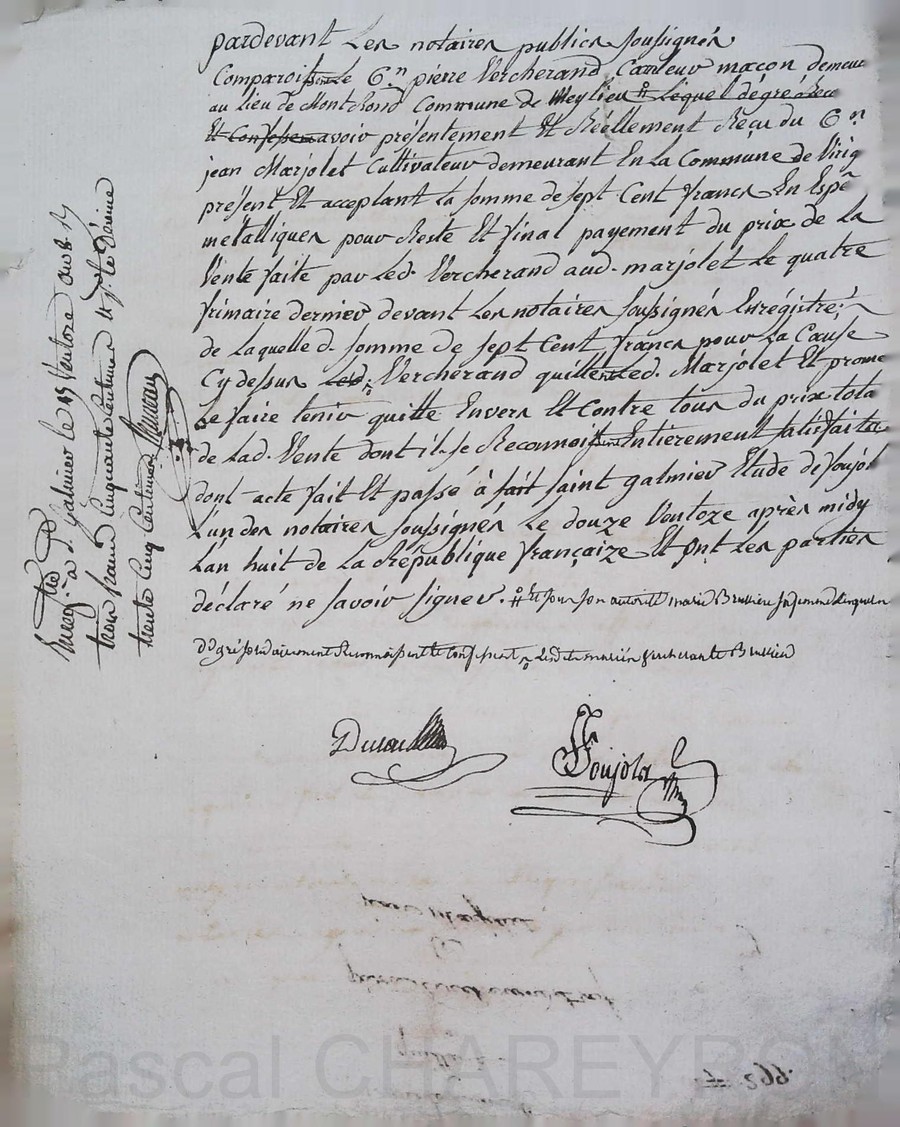 pardevant Les notaires publics soussignés
Comparoissent le C.en pierre Vercherand Carleur maçon demeu
au Lieu de Montrond Commune de Meylieu # Lequel dégré à Reco
Et Confessé avoir présentement Et Réellement Reçu du C.en
jean Marjolet Cultivateur demeurant En la Commune de Virig
présent Et acceptant la somme de sept Cent francs En Espè
métalliques pour Reste Et final payement du prix de La
Vente faite par Led. Vercherand aud. marjolet Le quatre
frimaire dernier devant Les notaires soussignés Enregistré,
de Laquelle d. somme de sept Cent francs pour La Cause
Cy dessus Led. Vercherand quittent Led. Marjolet Et prome
Le faire tenir quitte Envers Et Contre tous du prix tota
de Lad. Vente dont il se Reconnoissent Entièrement satisfaits
dont acte fait Et passé à fait saint galmier Etude de foujol
L'un des notaires soussignés Le douze Ventoze après midy
L'an huit de La République françaize Et ont Les parties
déclaré ne savoir signer. # Et sous son autorité marie Brussieu sa femme Lesquels
de gré solidairement Reconnoissent et confessent
Enreg.é à S. galmier le 15 Ventose an 8. R
trois francs Cinquante Centimes
trente Cinq Centimes
Foujols
299.
Pascal CHAREYRON